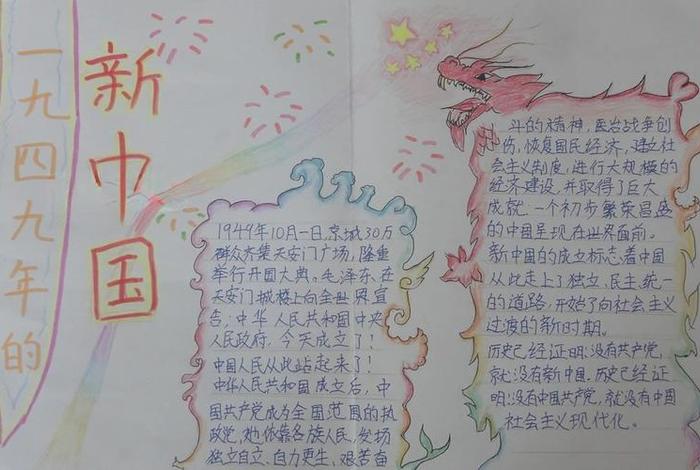 一九四九年的
新中国
1949年10月一日,京城30万
群众齐集天安门广场,隆重
举行开国大典。毛泽东在
天安门城楼上向全世界宣
告:中华人民共和国中央
人民政府,今天成立了!
中国人民从此站起来了!
中华人民共和国成立后,中
国共产党成为全国范围的执
政党,她依靠各族人民,发扬
独立自立、自力更生、艰苦奋
斗的精神,医治战争创
伤,恢复国民经济,建立社
会主义制度,进行大规模的
经济建设,并取得了巨大
成就.一个初步繁荣昌盛
的中国呈现在世界面前。
新中国的成立标志着中国
从此走上了独立、民主、统一
的道路,开始了向社会主义
过渡的新时期。
历史已经证明:没有共产党,
就没有新中国.历史已经证
明:没有中国共产党,就没有中国
社会主义现代化。